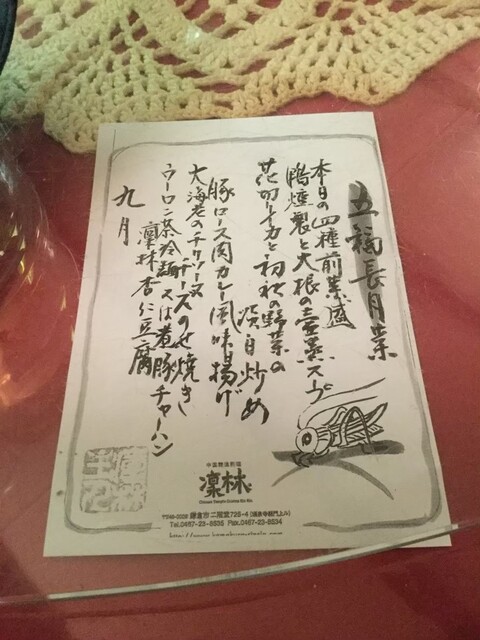 五福長月菜
本日の四種前菜盛
鴨燻製と大根の壷蒸スープ
花切りイカと初秋の野菜の
淡白炒め
豚ロース肉カレー風味揚げ
大海老のチリソース
チーズのせ焼き
ウーロン茶冷麺又は煮豚チャーハン
凛林杏仁豆腐
九月
中国精進料理
凛林
鎌倉市二階堂725-4
Tel.0467-23-8535 Fax.0467-23-8534